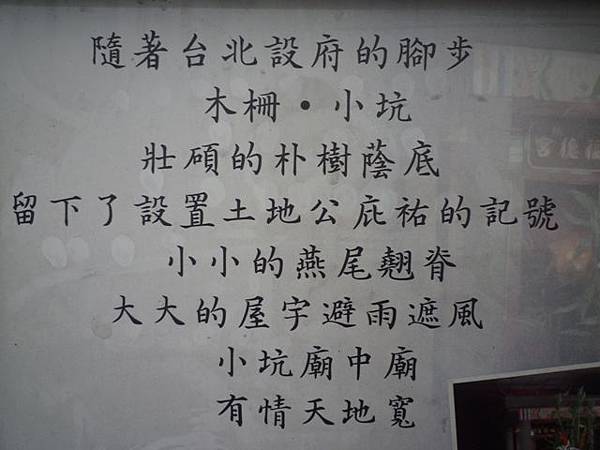 隨著台北設府的腳步
木柵·小坑
壯碩的朴樹蔭底
留下了設置土地公庇祐的記號
小小的燕尾翹脊
大大的屋宇避雨遮風
小坑廟中廟
有情天地寬